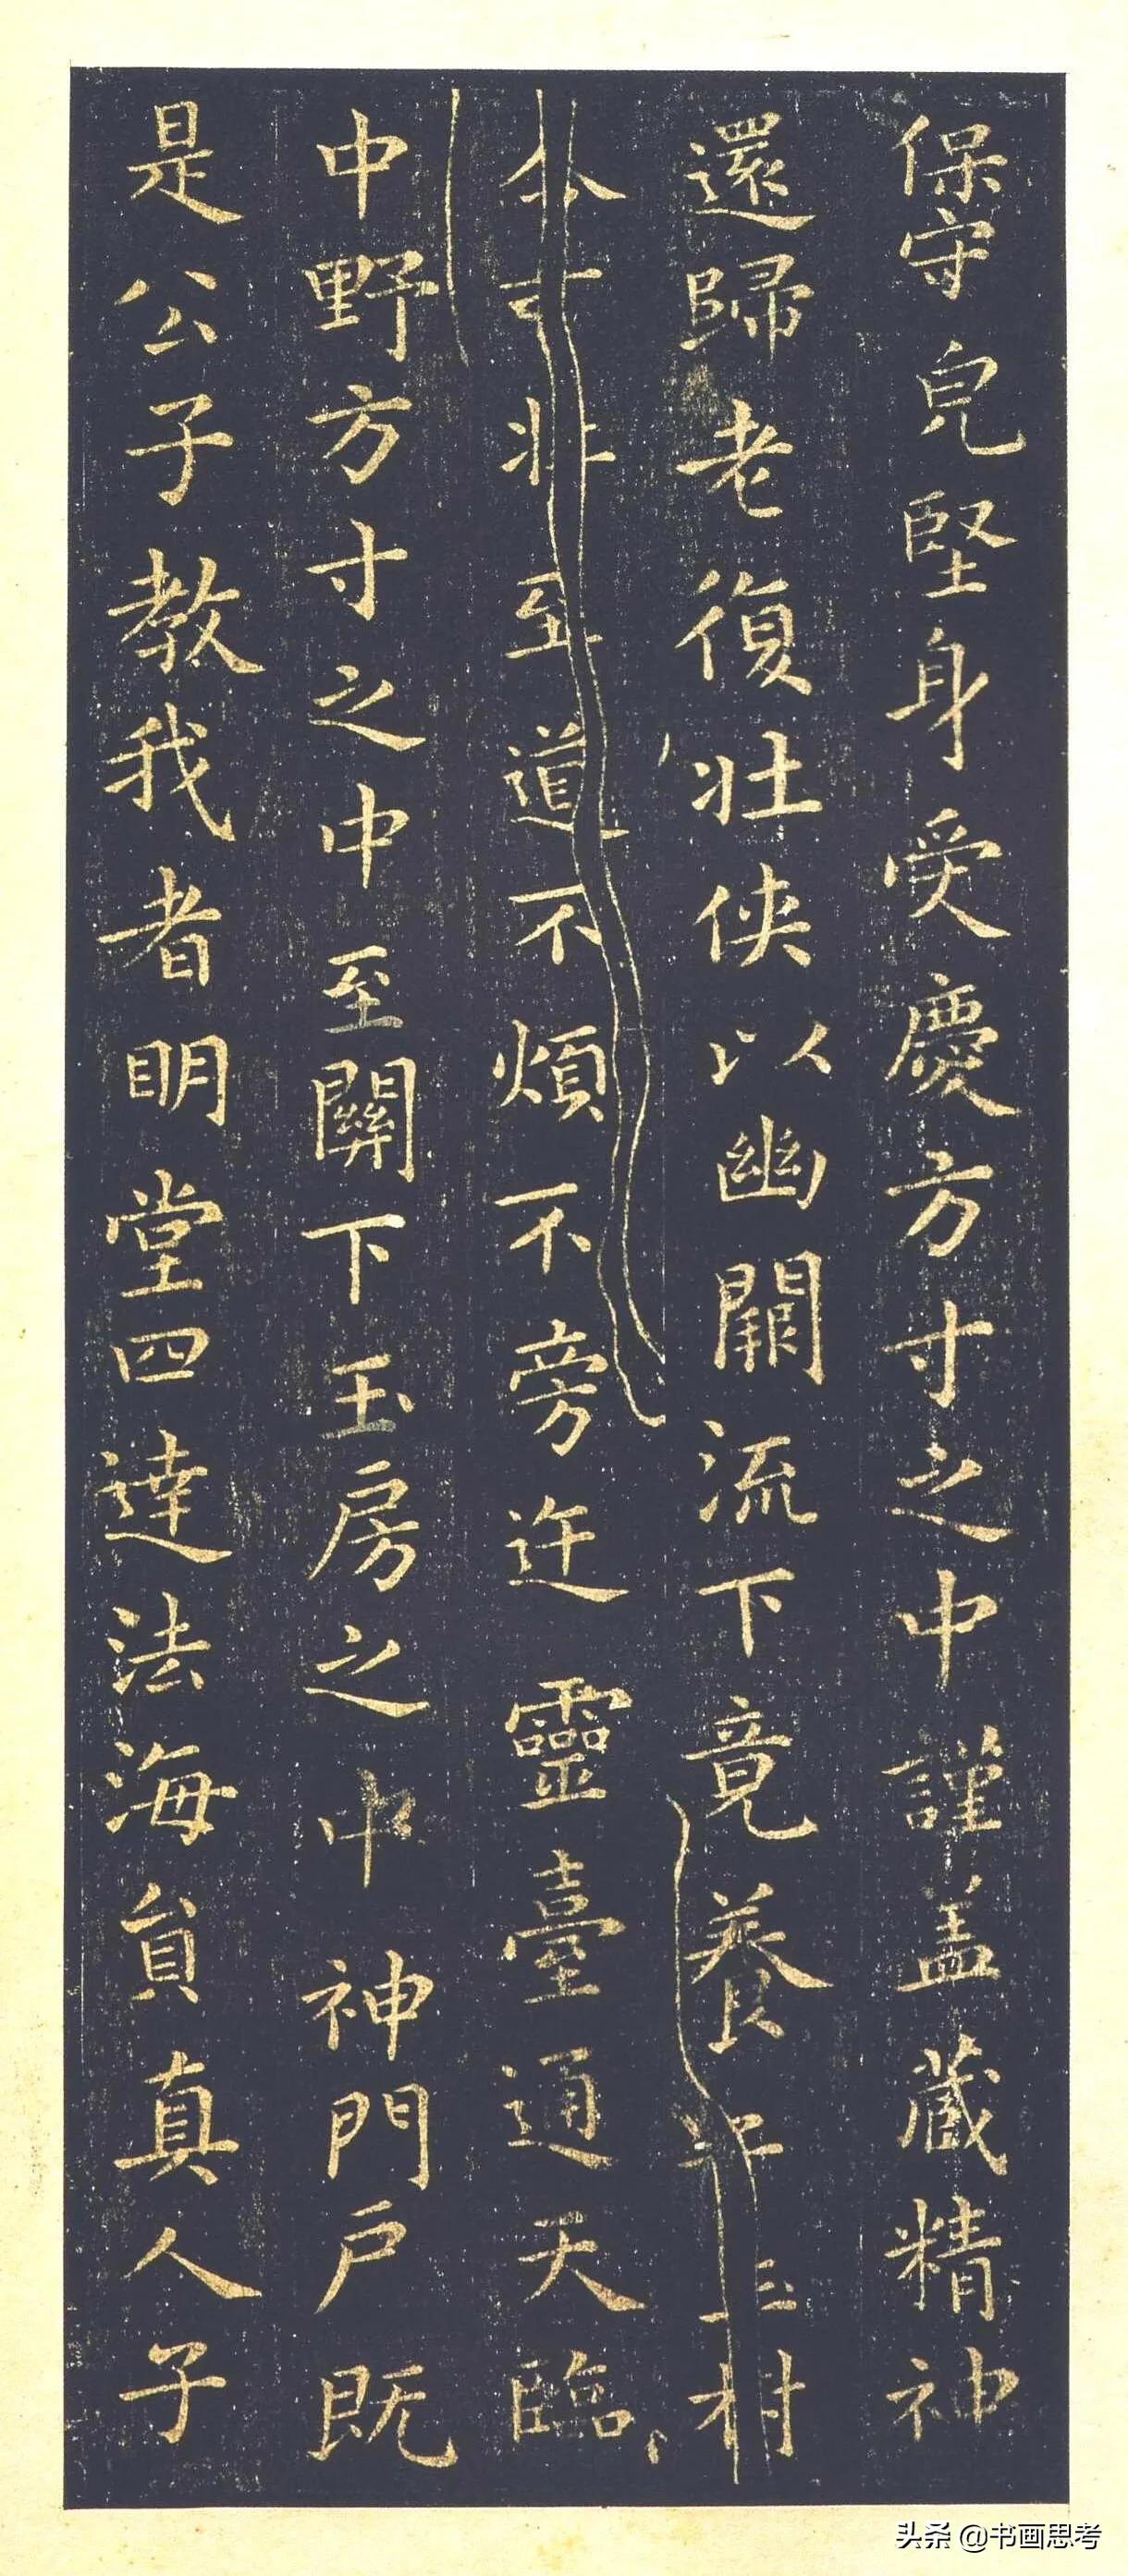 保守皃堅身受慶方寸之中謹盖藏精神
還歸老復壯俠以幽闕流下竟養
至道不煩不旁迕靈臺通天臨
中野方寸之中至關下玉房之中神門户既
是公子教我者眀堂四達法海員真人子
头条 @书画思考